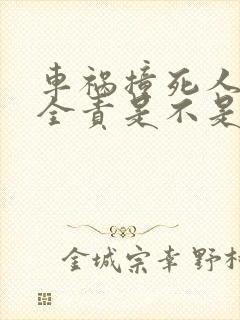 車祸撞死人
全责是不是
金城宗幸野村